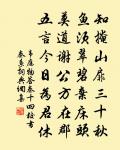 知掩山扉三十秋
魚須翠碧棄床頭
莫道謝公方在郡
五言今日為君休
韋應物答秦十四校書
秦系詞典網集